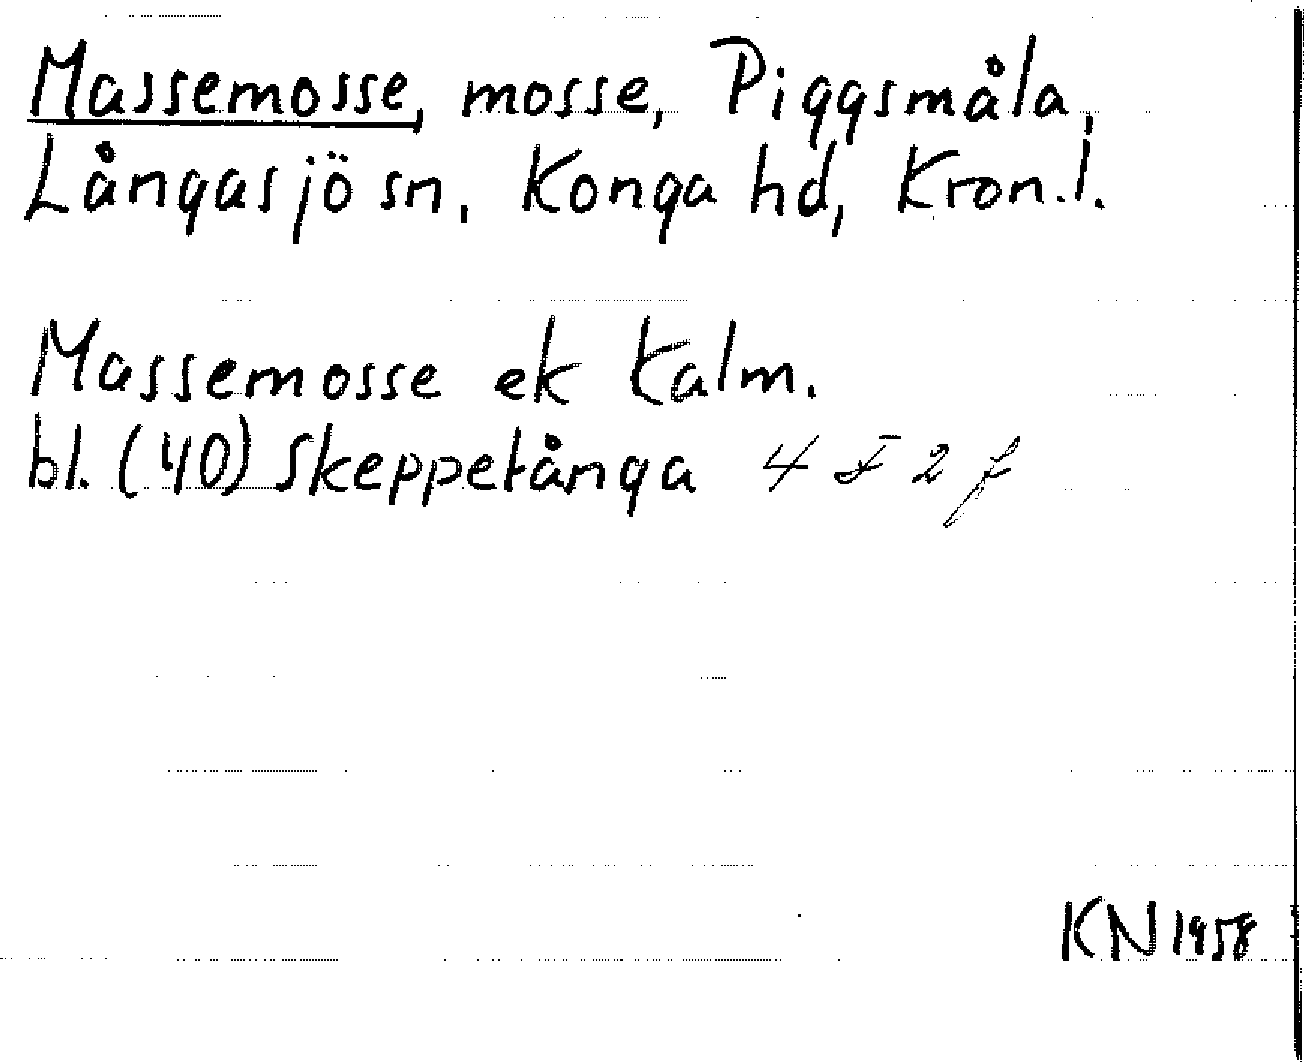 Massemosse, mosse, Piggsmåla,
Långasjö sn, Konga hd, Kron.l.
Massemosse ek Kalm.
bl. (40) Skeppetånga 4 F 2 f
KN 1958